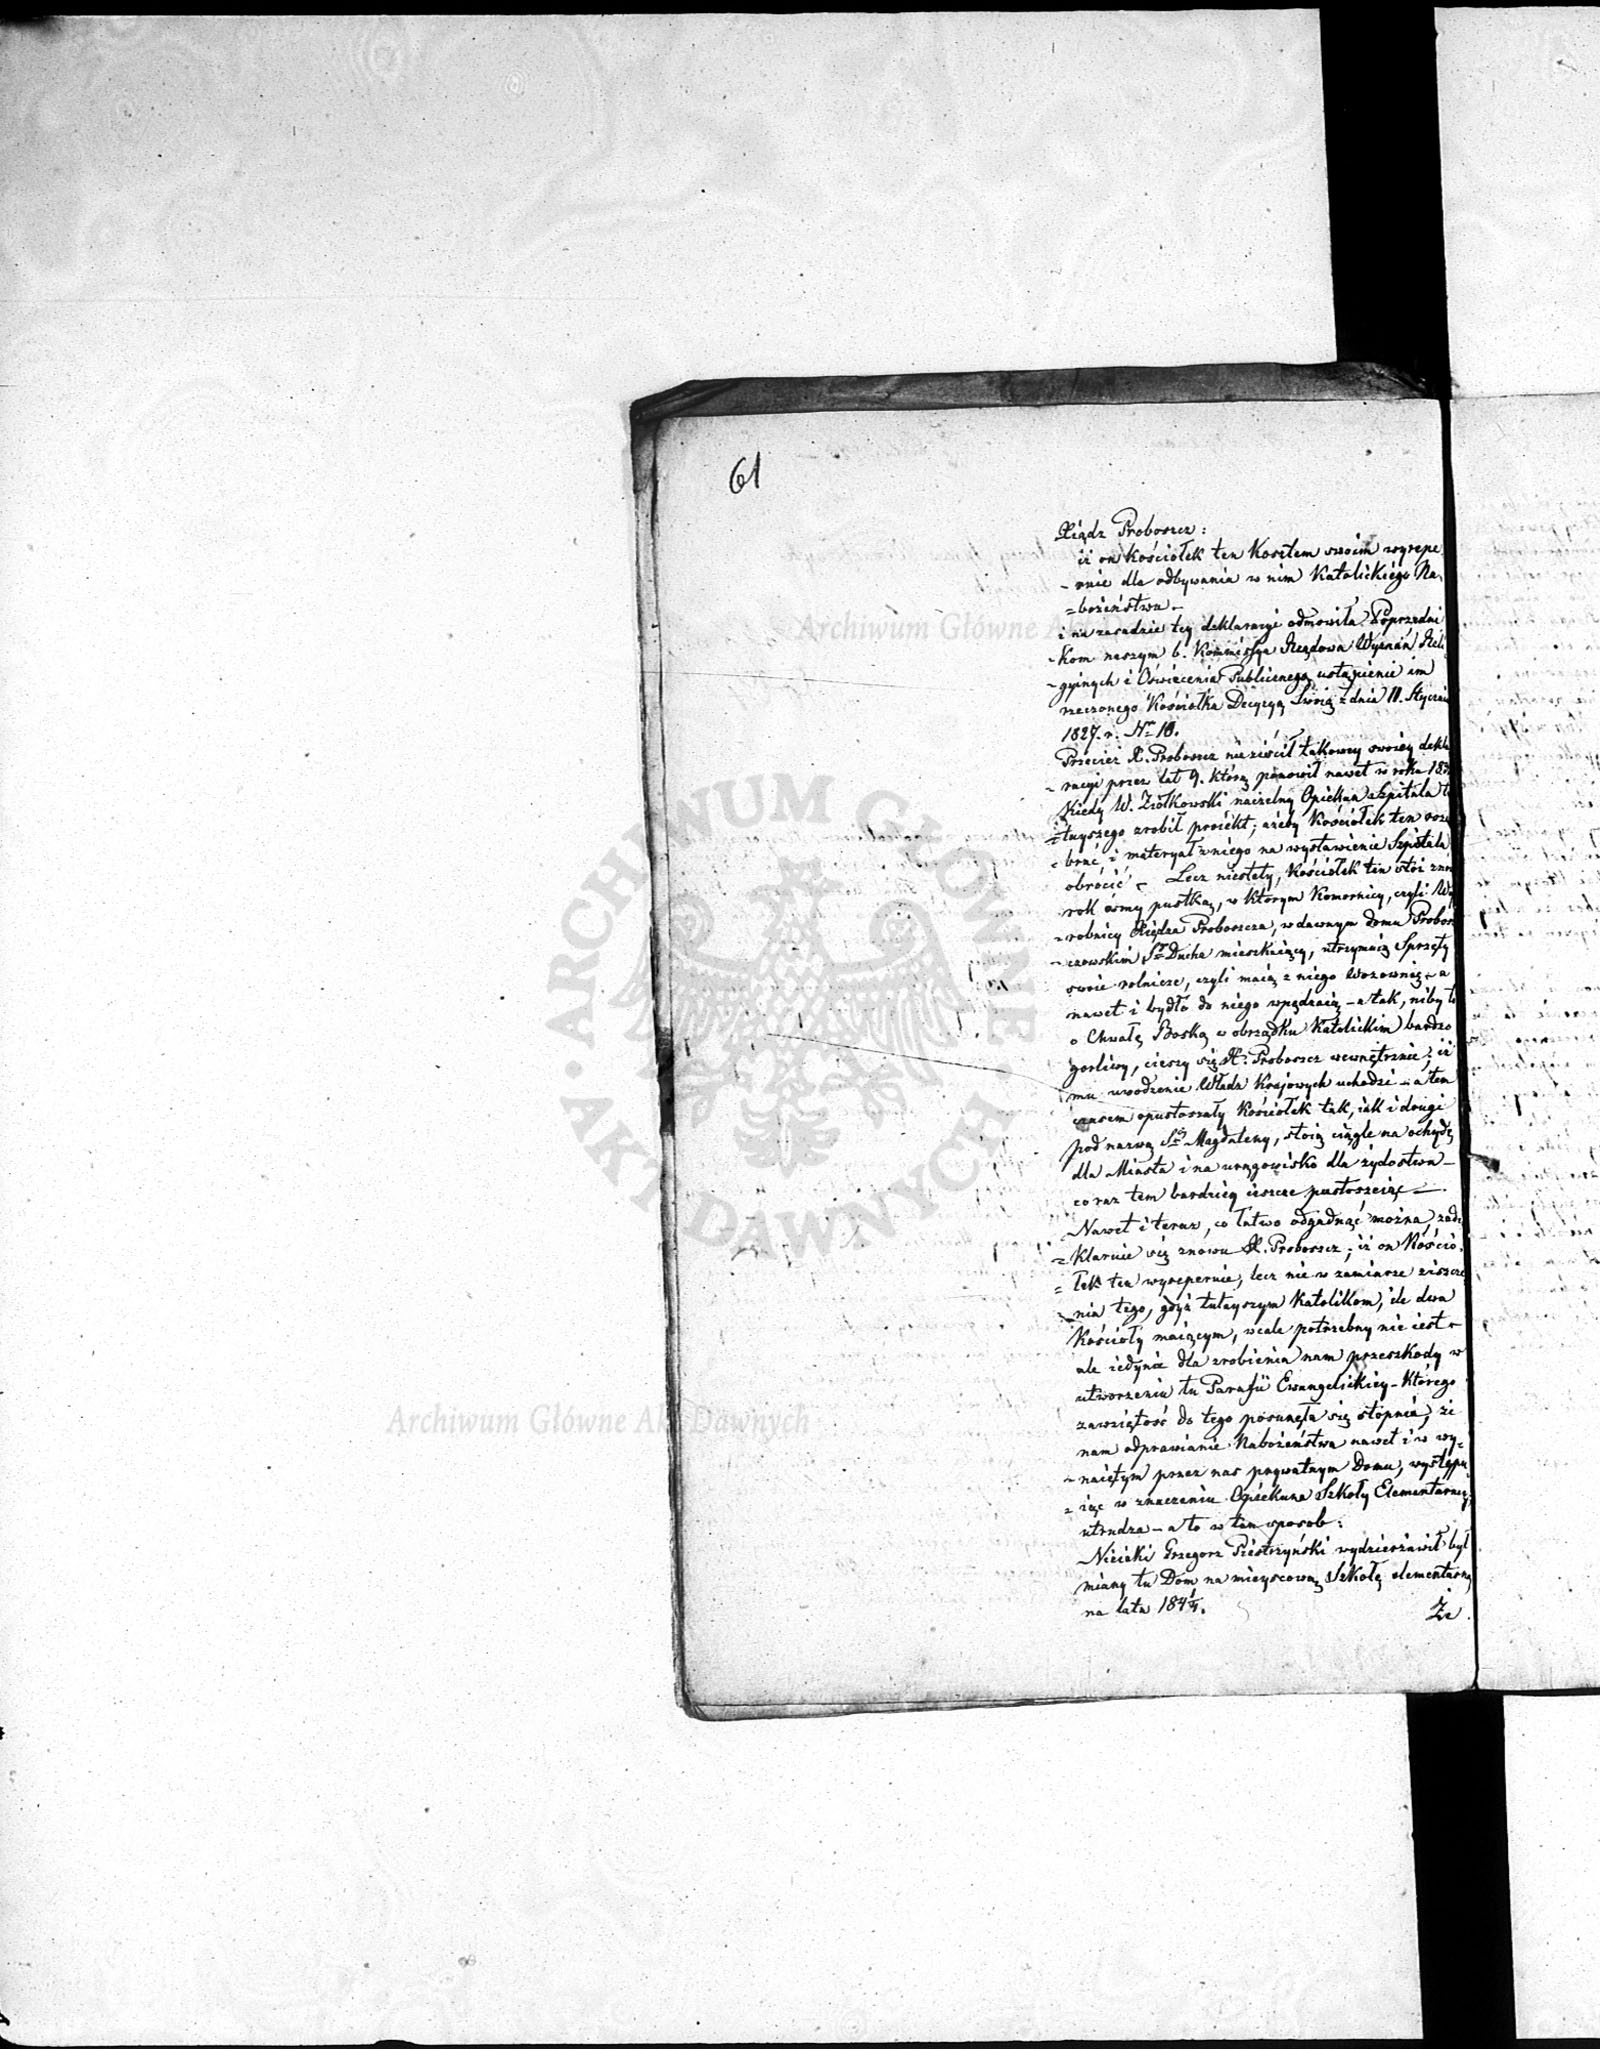 61
Xiądz Proboszcz:
iż on Kościołek ten Kosztem swoim wyrepe
- ruie dla odbywania w nim Katolickiego Na,
= bożeństwa —
i na zasadzie tey deklaracyi odmowiła Poprzedni
- Kom naszym b. Kommissya Rządowa Wyznań Reli
- gyinych i Oświecenia Publicznego, ustąpienie im
rzeczonego Kościołka Decyzyą Swoią z dnia 11. Stycznia
1827. r. Nr 10.
Przecież X. Proboszcz nie ziścił takowey swoiey dekla
- racyi przez lat 9. którą ponowił nawet w roku 183
Kiedy W. Ziołkowski naczelny Opiekun Szpitala tu
= tayszego zrobił proiekt; ażeby Kościołek ten roze
- brać i materyał z niego na wystawienie Szpitala
obrócić — Lecz niestety, Kościołek ten stoi znów
rok ósmy pustką, w którym Komornicy, czyli Wy
- robnicy Xiędza Proboszcza, w dawnym domu Probosz
- czowskim Sgo Ducha mieszkaiący, utrzymuią Sprzęty
swoie rolnicze, czyli maią z niego Wozownię — a
nawet i bydło do niego wpędzaią — a tak, niby to
o Chwałę Boską w obrządku Katolickim bardzo
gorliwy, cieszy się X. Proboszcz wewnętrznie; iż
mu uwodzenie Władz Krajowych uchodzi — a tem
czasem opustoszały Kościołek tak, iak i drugi
pod nazwą Stey Magdaleny, stoią ciągle na ochydę
dla Miasta i na urągowisko dla żydostwa —
co raz tem bardziey ieszcze pustoszeiąc —
Nawet i teraz, co łatwo odgadnąć można, zade
= klaruie się znowu X. Proboszcz; iż on Kościo,
= łek ten wyreperuie, lecz nie w zamiarze ziszcze
- nia tego, gdyż tutayszym Katolikom, ile dwa
Kościoły maiącym, wcale potrzebny nie iest —
ale iedynie dla zrobienia nam przeszkody w
utworzeniu tu Parafii Ewangelickiey — którego
zawziętość do tego posunęła się stopnia, że
nam odprawianie Nabożeństwa nawet i w wy,
- naiętym przez nas prywatnym Domu, występu,
= iąc w znaczeniu Opiekuna Szkoły Elementarney,
utrudza — a to w ten sposob:
Nieiaki Grzegorz Piestrzyński wydzierżawił był
miany tu Dom na mieyscową Szkołę elementarną
na lata 184¼.
Że
Archiwum Główne Akt Dawnych
ARCHIWUM GŁÓWNE AKT DAWNYCH
Archiwum Główne Akt Dawnych